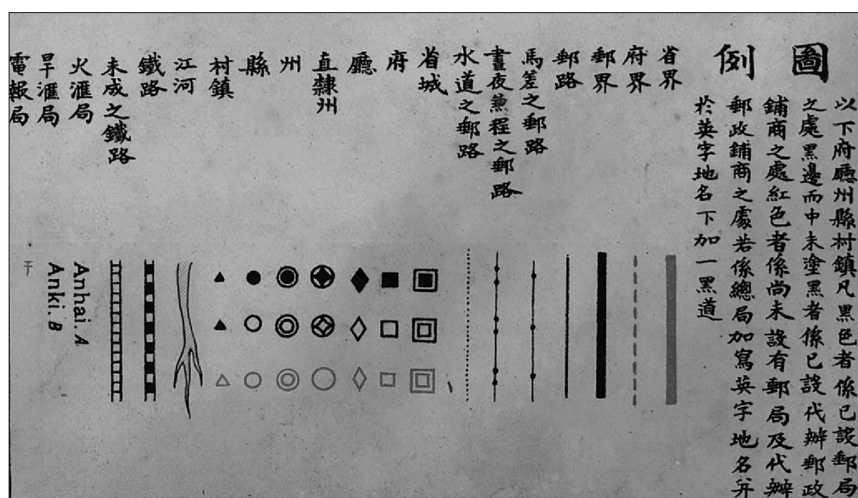 圖例
以下府廳州縣村鎮凡黑色者係已設郵局
之處黑邊而中未塗黑者係已設代辦郵政
鋪商之處紅色者係尚未設有郵局及代辦
郵政鋪商之處若係總局加寫英字地名并
於英字地名下加一黑道
省界
府界
郵界
郵路
馬差之郵路
晝夜兼程之郵路
水道之郵路
省城
府
廳
直隸州
州
縣
村鎮
江河
鐵路
未成之鐵路
火滙局
旱滙局
電報局
Anhai. A
Anki. B